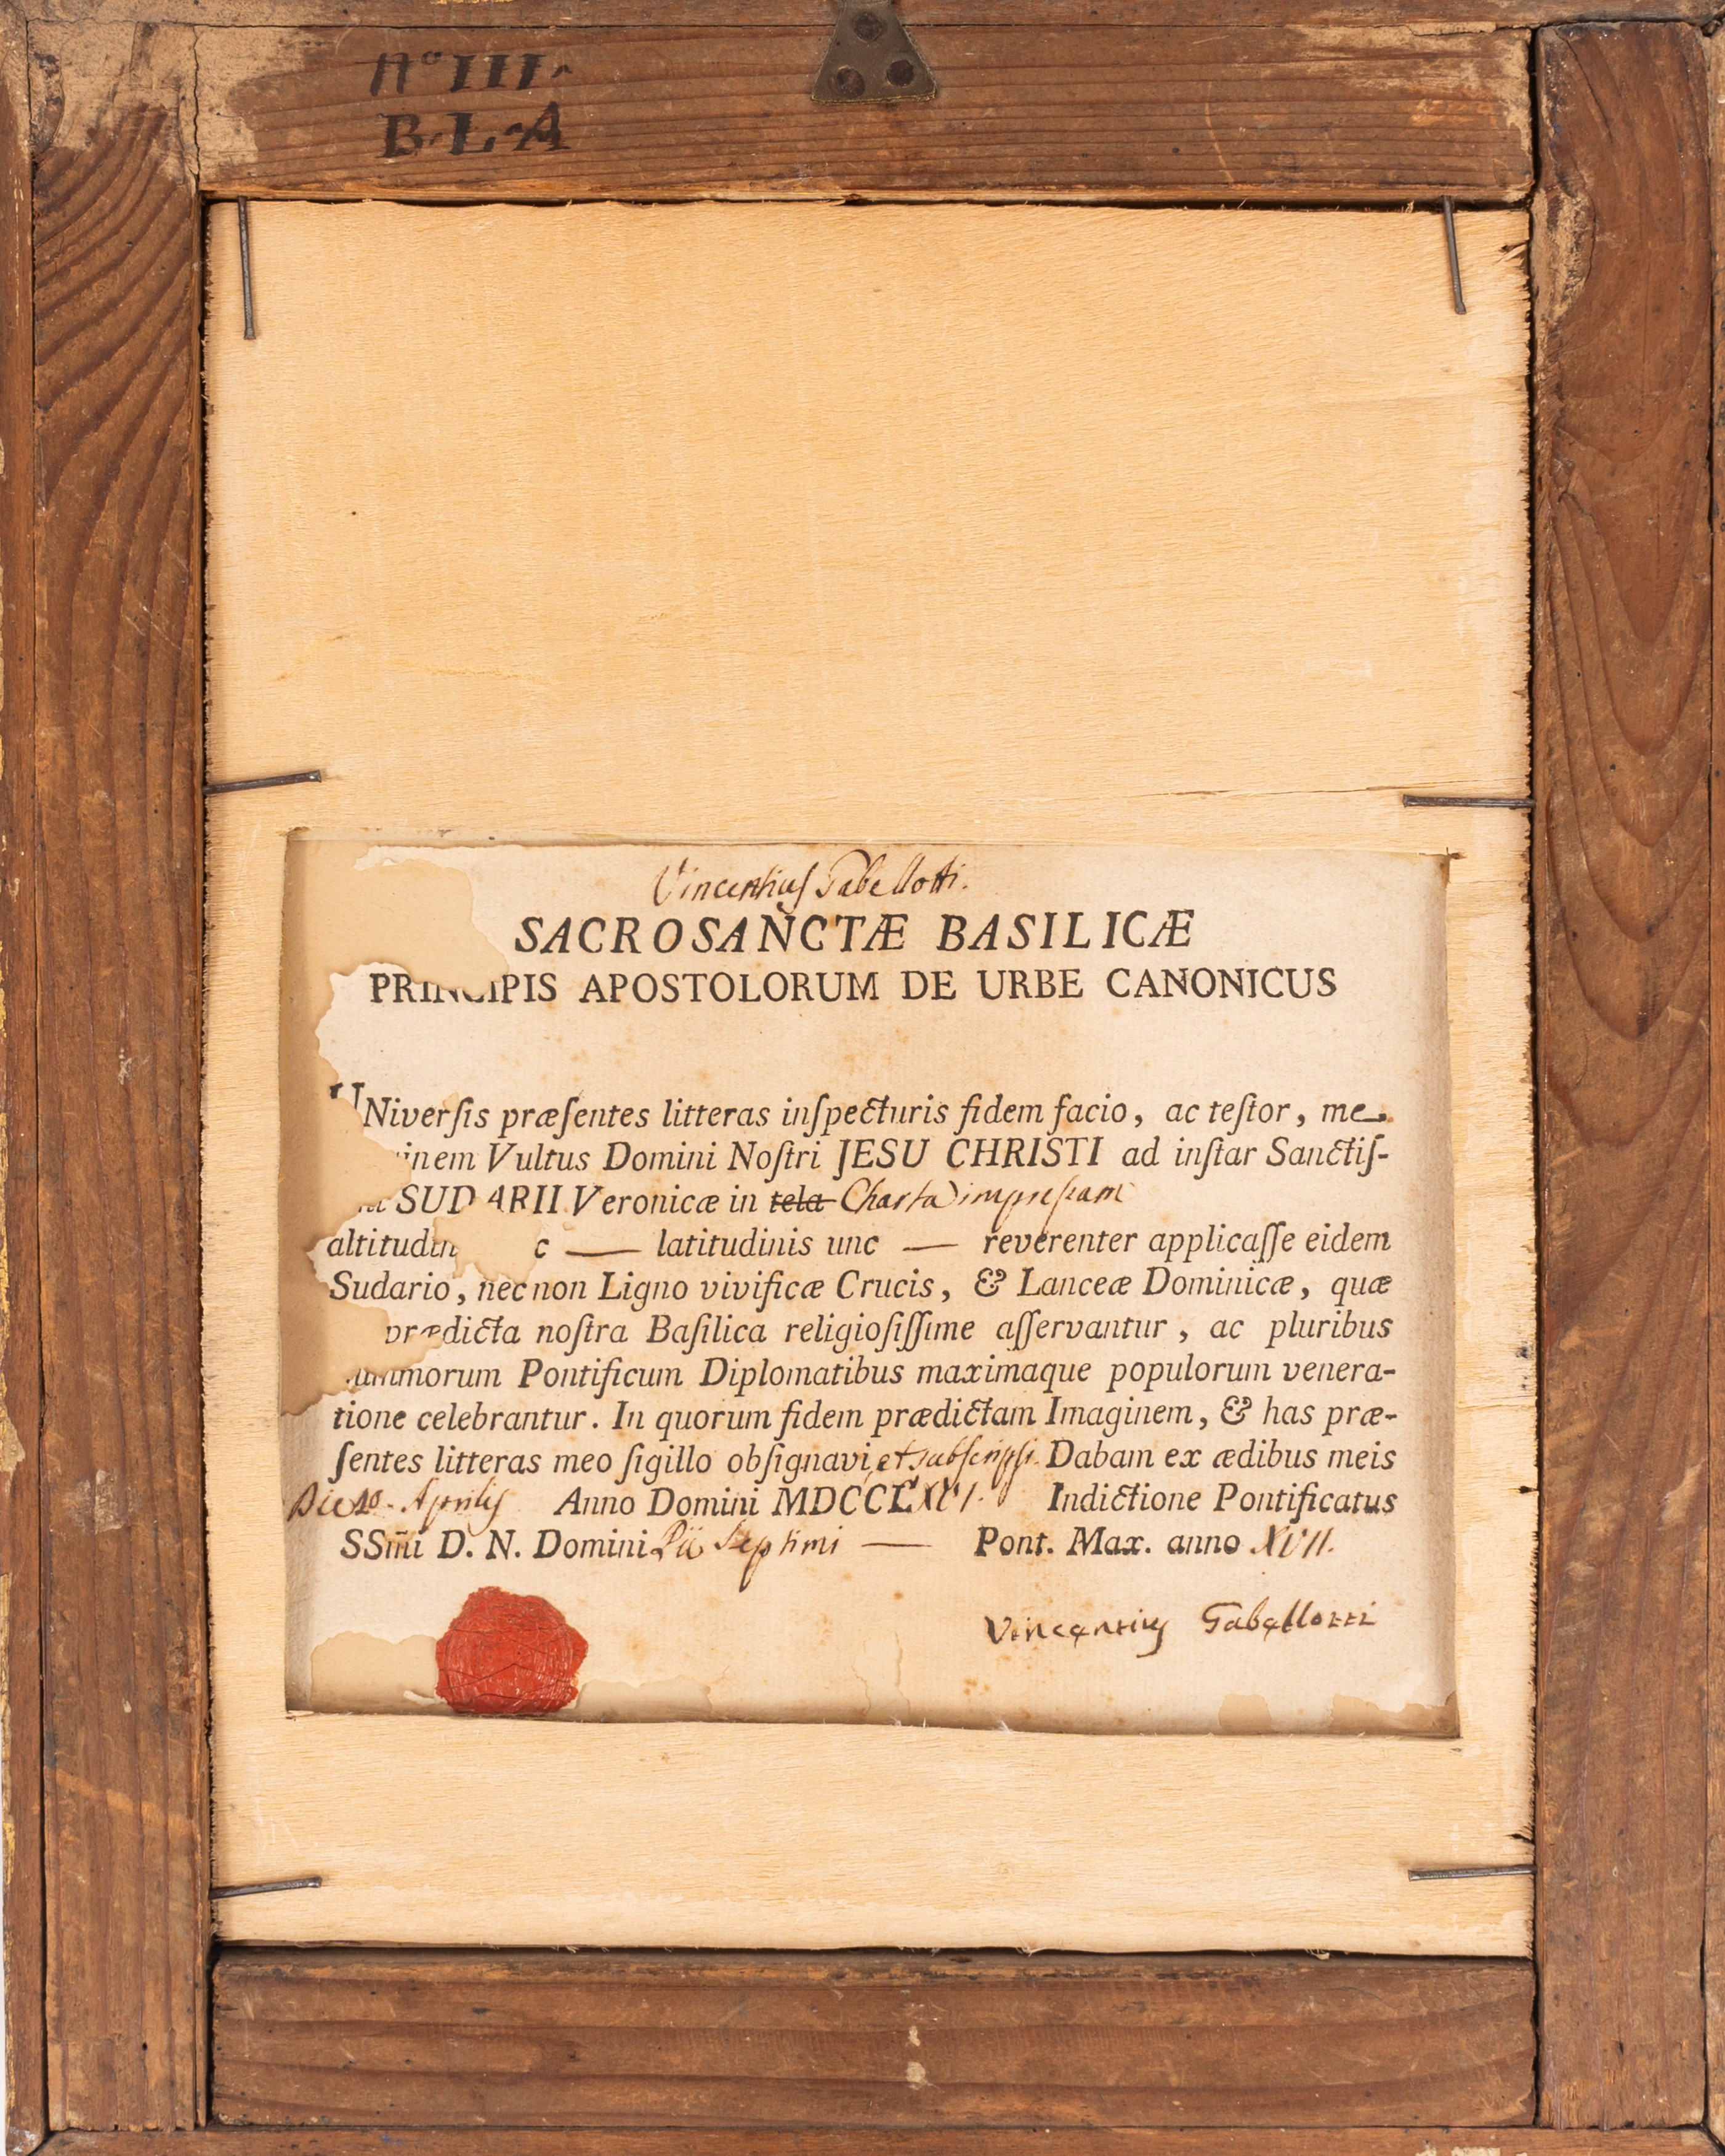 Nº III.
B. L. A
Vincentius Gabellotti.
SACROSANCTÆ BASILICÆ
PRINCIPIS APOSTOLORUM DE URBE CANONICUS
UNiverſis præſentes litteras inſpecturis fidem facio, ac teſtor, me
inem Vultus Domini Noſtri JESU CHRISTI ad inſtar Sanctiſ-
SUDARII Veronicæ in tela Charta impreſsam
altitudin c — latitudinis unc — reverenter applicaſſe eidem
Sudario, necnon Ligno vivificæ Crucis, & Lanceæ Dominicæ, quæ
prædicta noſtra Baſilica religioſiſſime aſſervantur, ac pluribus
ummorum Pontificum Diplomatibus maximaque populorum venera-
tione celebrantur. In quorum fidem prædictam Imaginem, & has præ-
ſentes litteras meo ſigillo obſignavi, et subſcripſi. Dabam ex ædibus meis
Die 10. Aprilis Anno Domini MDCCCXVI. Indictione Pontificatus
SSm̃i D. N. Domini Pii Septimi — Pont. Max. anno XVII.
Vincentius Gabellotti